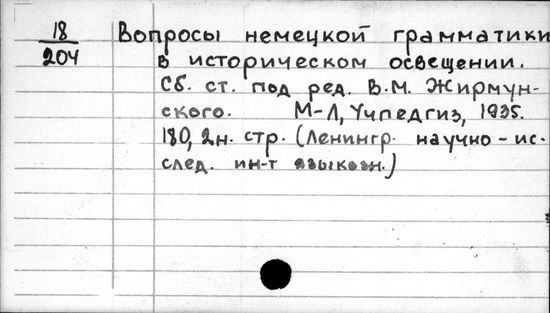 18
204
Вопросы немецкой грамматики
в историческом освещении.
Сб. ст. под ред. В.М. Жирмун-
ского. М-Л, Учпедгиз, 1935.
180, 2н. стр. (Ленингр. научно-ис-
след. ин-т языкозн.)